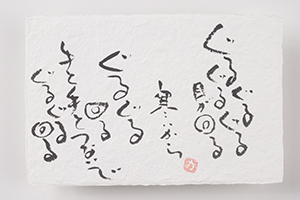 ぐるぐる
ぐるぐる
目が回る
寒いから
ぐるぐる
回る
手と手をつないで
ぐるぐる
回る